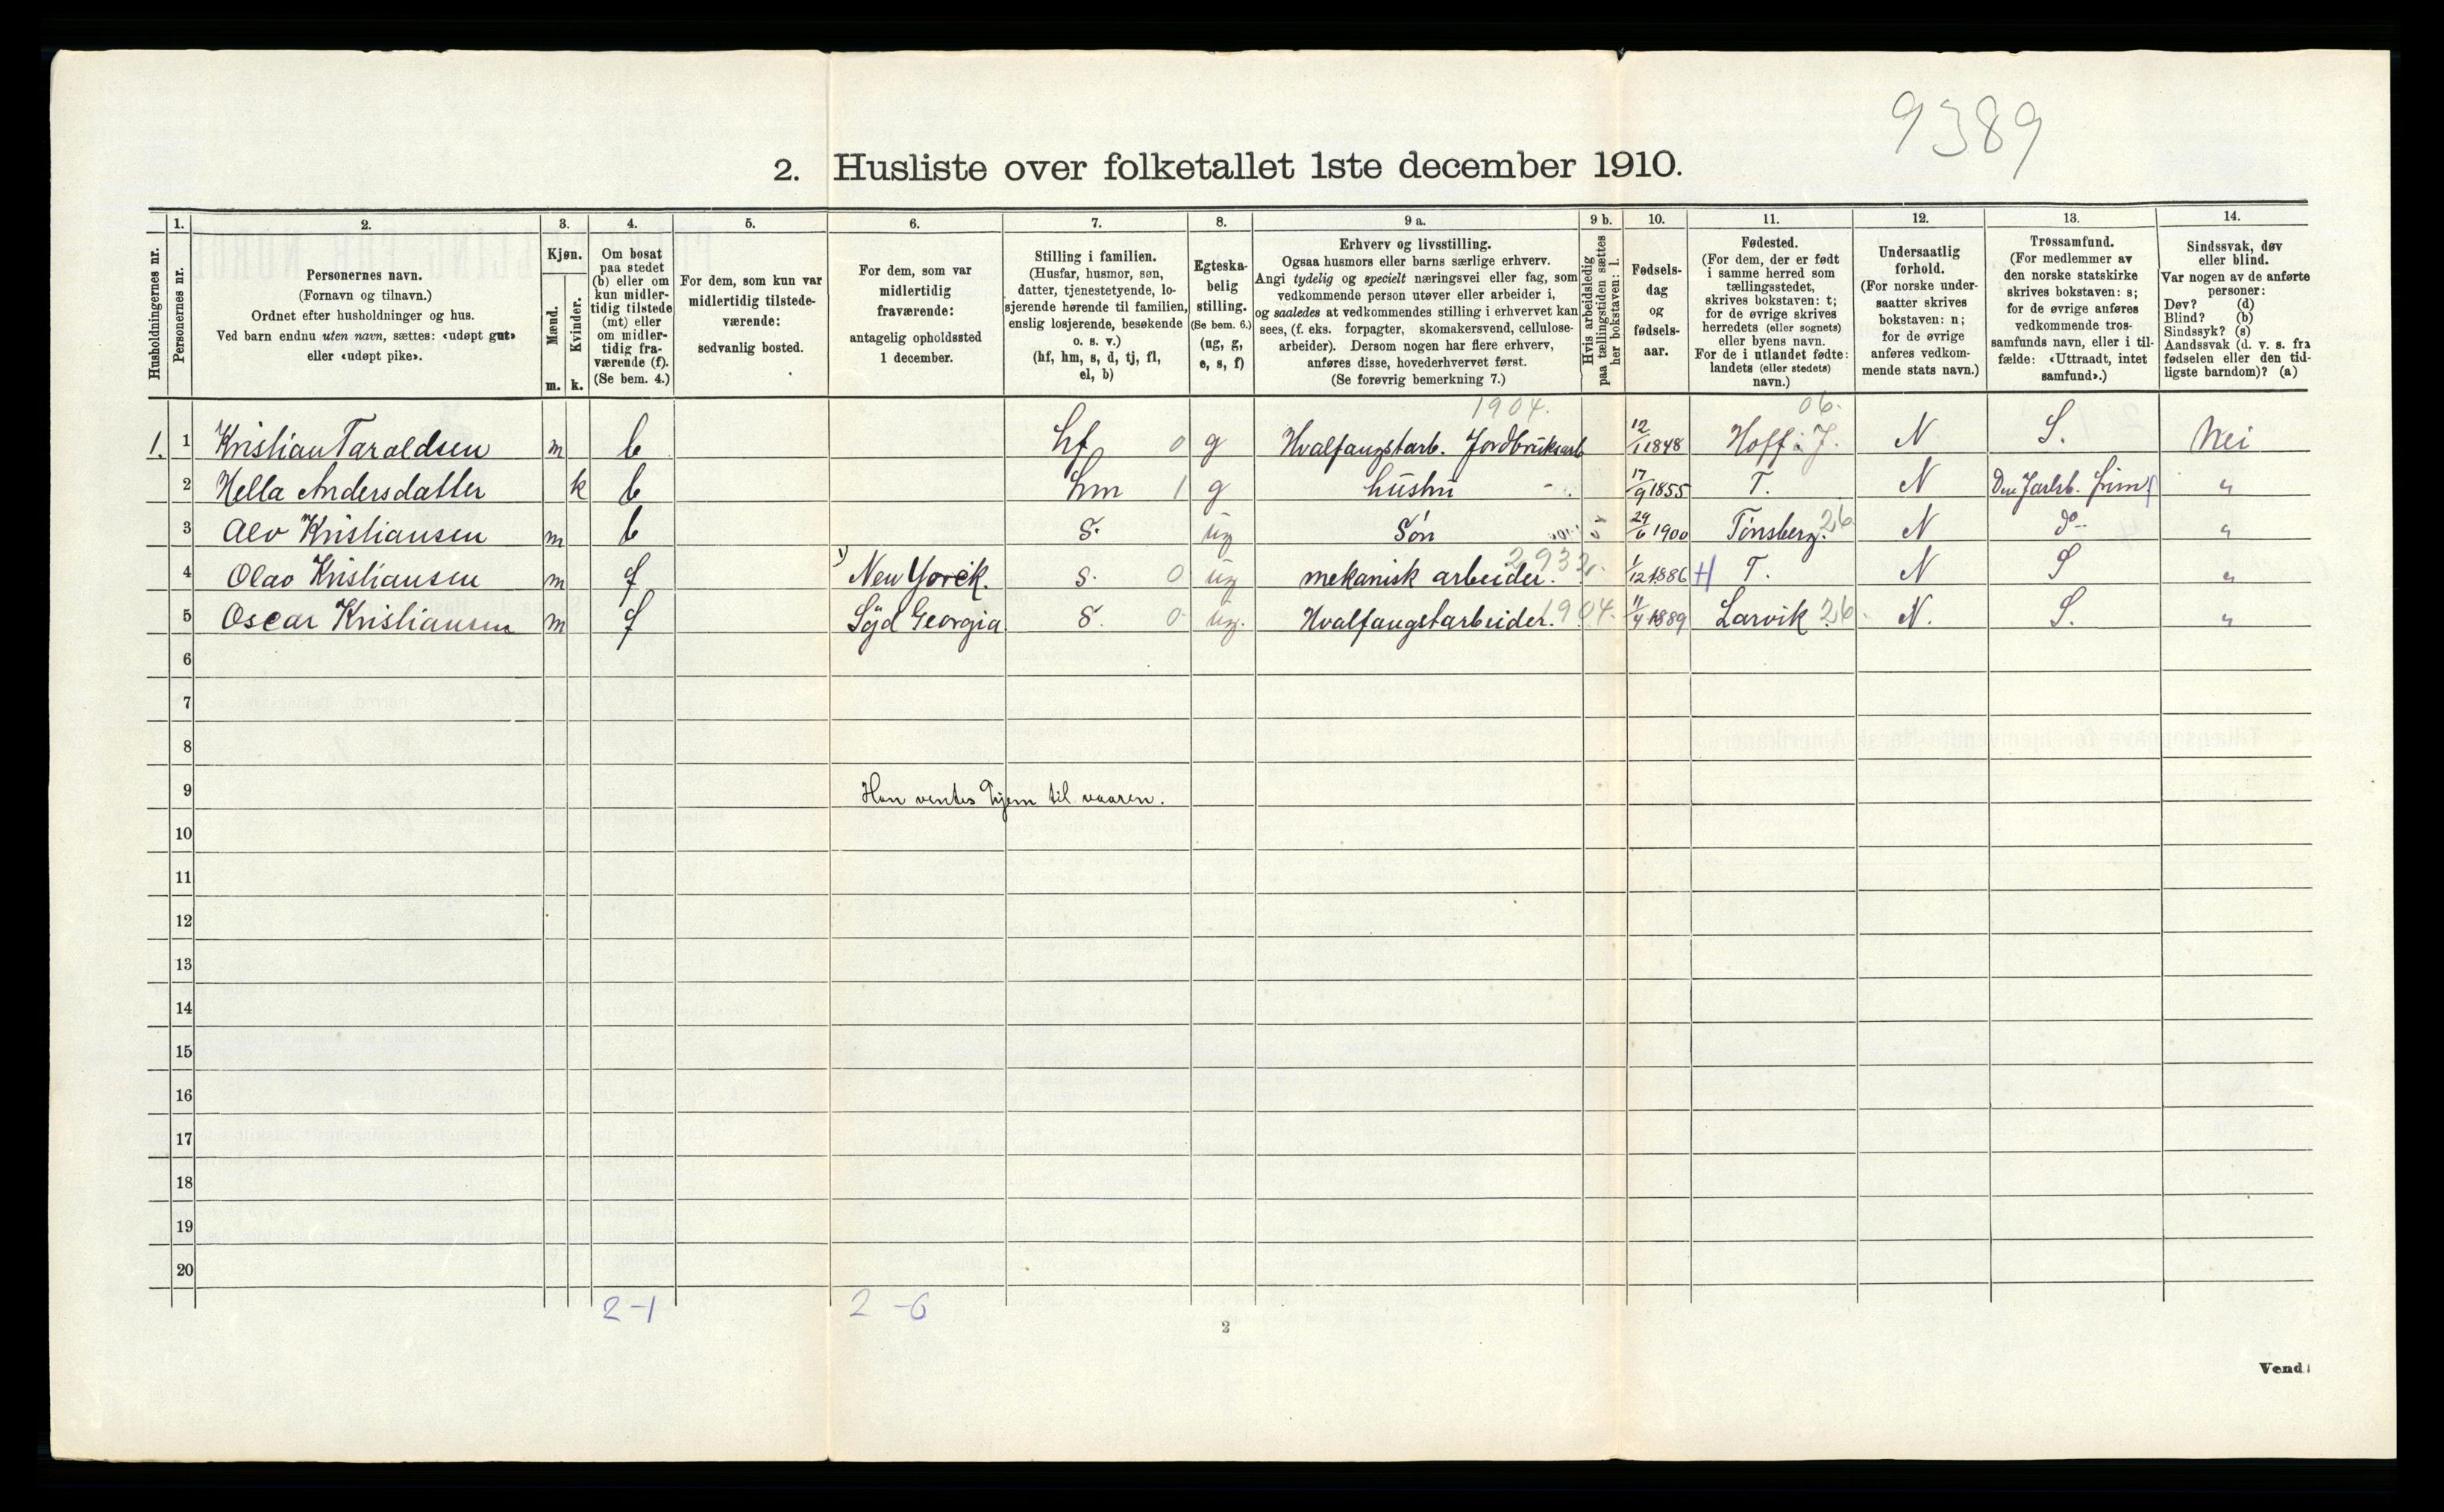 9389
2. Husliste over folketallet 1ste december 1910.
Husholdningernes nr.
1.
Personernes nr.
2.
Personernes navn.
(Fornavn og tilnavn.)
Ordnet efter husholdninger og hus.
Ved barn endnu uten navn, sættes: «udøpt gut»
eller «udøpt pike».
3.
Kjøn.
Mænd.
Kvinder.
m. k.
4.
Om bosat
paa stedet
(b) eller om
kun midler-
tidig tilstede
(mt) eller
om midler-
tidig fra-
værende (f).
(Se bem. 4.)
5.
For dem, som kun var
midlertidig tilstede-
værende:
sedvanlig bosted.
6.
For dem, som var
midlertidig
fraværende:
antagelig opholdssted
1 december.
7.
Stilling i familien.
(Husfar, husmor, søn,
datter, tjenestetyende, lo-
sjerende hørende til familien,
enslig losjerende, besøkende
o. s. v.)
(hf, hm, s, d, tj, fl,
el, b)
8.
Egteska-
belig
stilling.
(Se bem. 6.)
(ug, g,
e, s, f)
9 a.
Erhverv og livsstilling.
Ogsaa husmors eller barns særlige erhverv.
Angi tydelig og specielt næringsvei eller fag, som
vedkommende person utøver eller arbeider i,
og saaledes at vedkommendes stilling i erhvervet kan
sees, (f. eks. forpagter, skomakersvend, cellulose-
arbeider). Dersom nogen har flere erhverv,
anføres disse, hovederhvervet først.
(Se forøvrig bemerkning 7.)
9 b.
Hvis arbeidsledig
paa tællingstiden sættes
her bokstaven: l.
10.
Fødsels-
dag
og
fødsels-
aar.
11.
Fødested.
(For dem, der er født
i samme herred som
tællingsstedet,
skrives bokstaven: t;
for de øvrige skrives
herredets (eller sognets)
eller byens navn.
For de i utlandet fødte:
landets (eller stedets)
navn.)
12.
Undersaatlig
forhold.
(For norske under-
saatter skrives
bokstaven: n;
for de øvrige
anføres vedkom-
mende stats navn.)
13.
Trossamfund.
(For medlemmer av
den norske statskirke
skrives bokstaven: s;
for de øvrige anføres
vedkommende tros-
samfunds navn, eller i til-
fælde: «Uttraadt, intet
samfund».)
14.
Sindssvak, døv
eller blind.
Var nogen av de anførte
personer:
Døv? (d)
Blind? (b)
Sindssyk? (s)
Aandssvak (d. v. s. fra
fødselen eller den tid-
ligste barndom)? (a)
1904. 06.
1. 1 Kristian Taraldsen m b hf 0 g Hvalfangstarb. Jordbruksarb 12/1 1848 Hoff i J. N S. Nei
2 Hella Andersdatter k b hm 1 g hustru - 17/9 1855 T. N Den Jarlsb. frim "
3 Alv Kristiansen m b s. ug Søn 29/6 1900 Tønsberg. 26 N do "
4 Olav Kristiansen m f 1) New Yorck. s. 0 ug mekanisk arbeider. 2932. 1/12 1886 H T. N S "
5 Oscar Kristiansen m f Syd Georgia s. 0 ug. Hvalfangstarbeider. 1904. 11/4 1889 Larvik 26. N. S. "
6
7
8
9 Han ventes hjem til vaaren.
10
11
12
13
14
15
16
17
18
19
20
2-1 2-6
2
Vend!